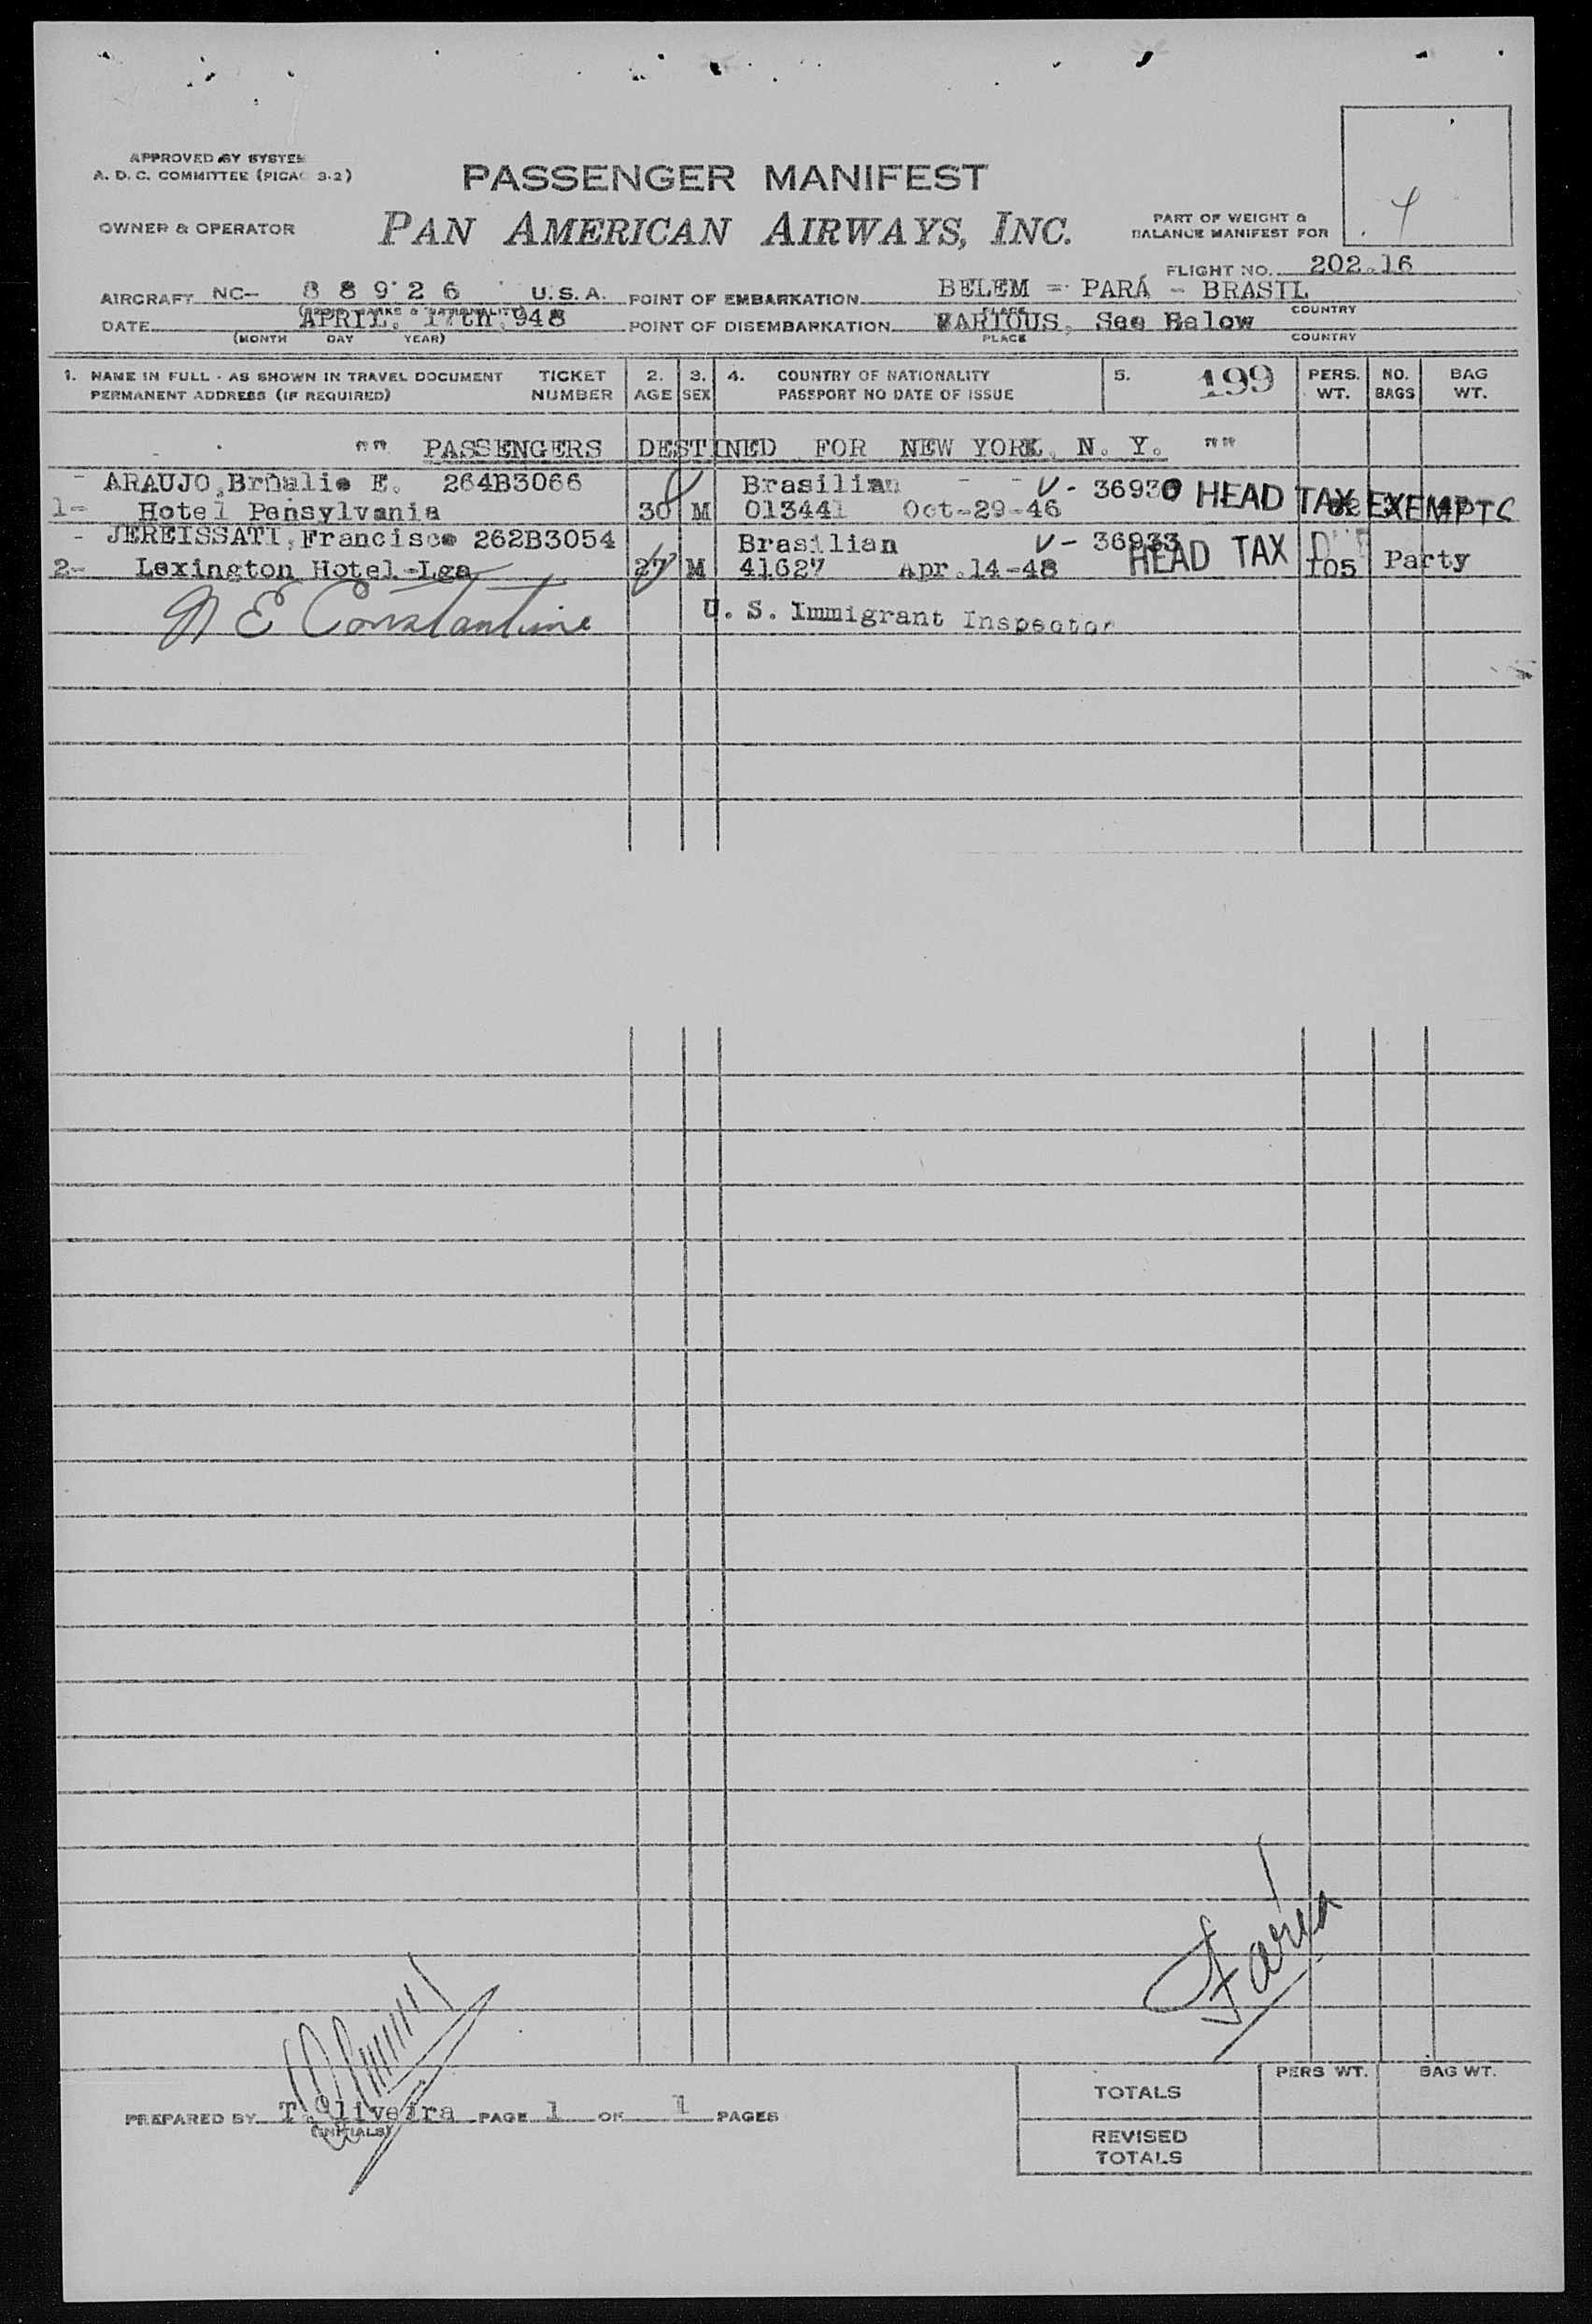 APPROVED BY SYSTEM
A. D. C. COMMITTEE (PICAO 3-2)
PASSENGER MANIFEST
OWNER & OPERATOR
PAN AMERICAN AIRWAYS, INC.
PART OF WEIGHT &
BALANCE MANIFEST FOR
FLIGHT NO. 202.16
AIRCRAFT NC- 88926 U.S.A. POINT OF EMBARKATION BELEM - PARÁ - BRASIL
PLACE COUNTRY
DATE APRIL, 17th, 948 POINT OF DISEMBARKATION VARIOUS, See Below
(MONTH DAY YEAR) PLACE COUNTRY
1. NAME IN FULL - AS SHOWN IN TRAVEL DOCUMENT TICKET 2. 3. 4. COUNTRY OF NATIONALITY 5. 199 PERS. NO. BAG
PERMANENT ADDRESS (IF REQUIRED) NUMBER AGE SEX PASSPORT NO DATE OF ISSUE WT. BAGS WT.
"" PASSENGERS DESTINED FOR NEW YORK, N. Y. ""
- ARAUJO, E. 264B3066 Brasilian - - V - 36930 HEAD TAX EXEMPT
1- Hotel Pensylvania 30 M 013441 Oct-29-46
- JEREISSATI, Francisco 262B3054 Brasilian V - 36933 HEAD TAX
2- Lexington Hotel-Lga 27 M 41627 Apr.14-48 105 Party
N E Constantine U. S. Immigrant Inspector
Faria
PREPARED BY T. Oliveira PAGE 1 OF 1 PAGES
(INITIALS)
PERS WT. BAG WT.
TOTALS
REVISED
TOTALS